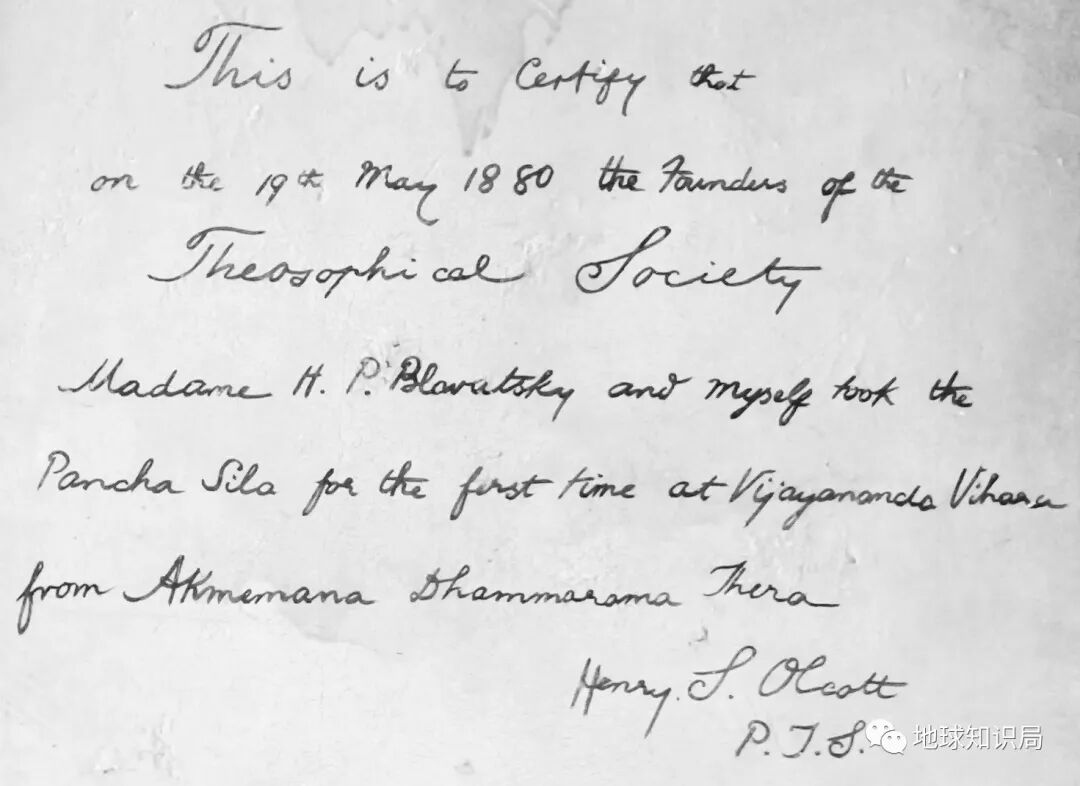 This is to Certify that
on the 19th May 1880 the Founders of the
Theosophical Society
Madame H. P. Blavatsky and myself took the
Pancha Sila for the first time at Vijayananda Vihara
from Akmemana Dhammarama Thera
Henry. S. Olcott
P. T. S.
地球知识局